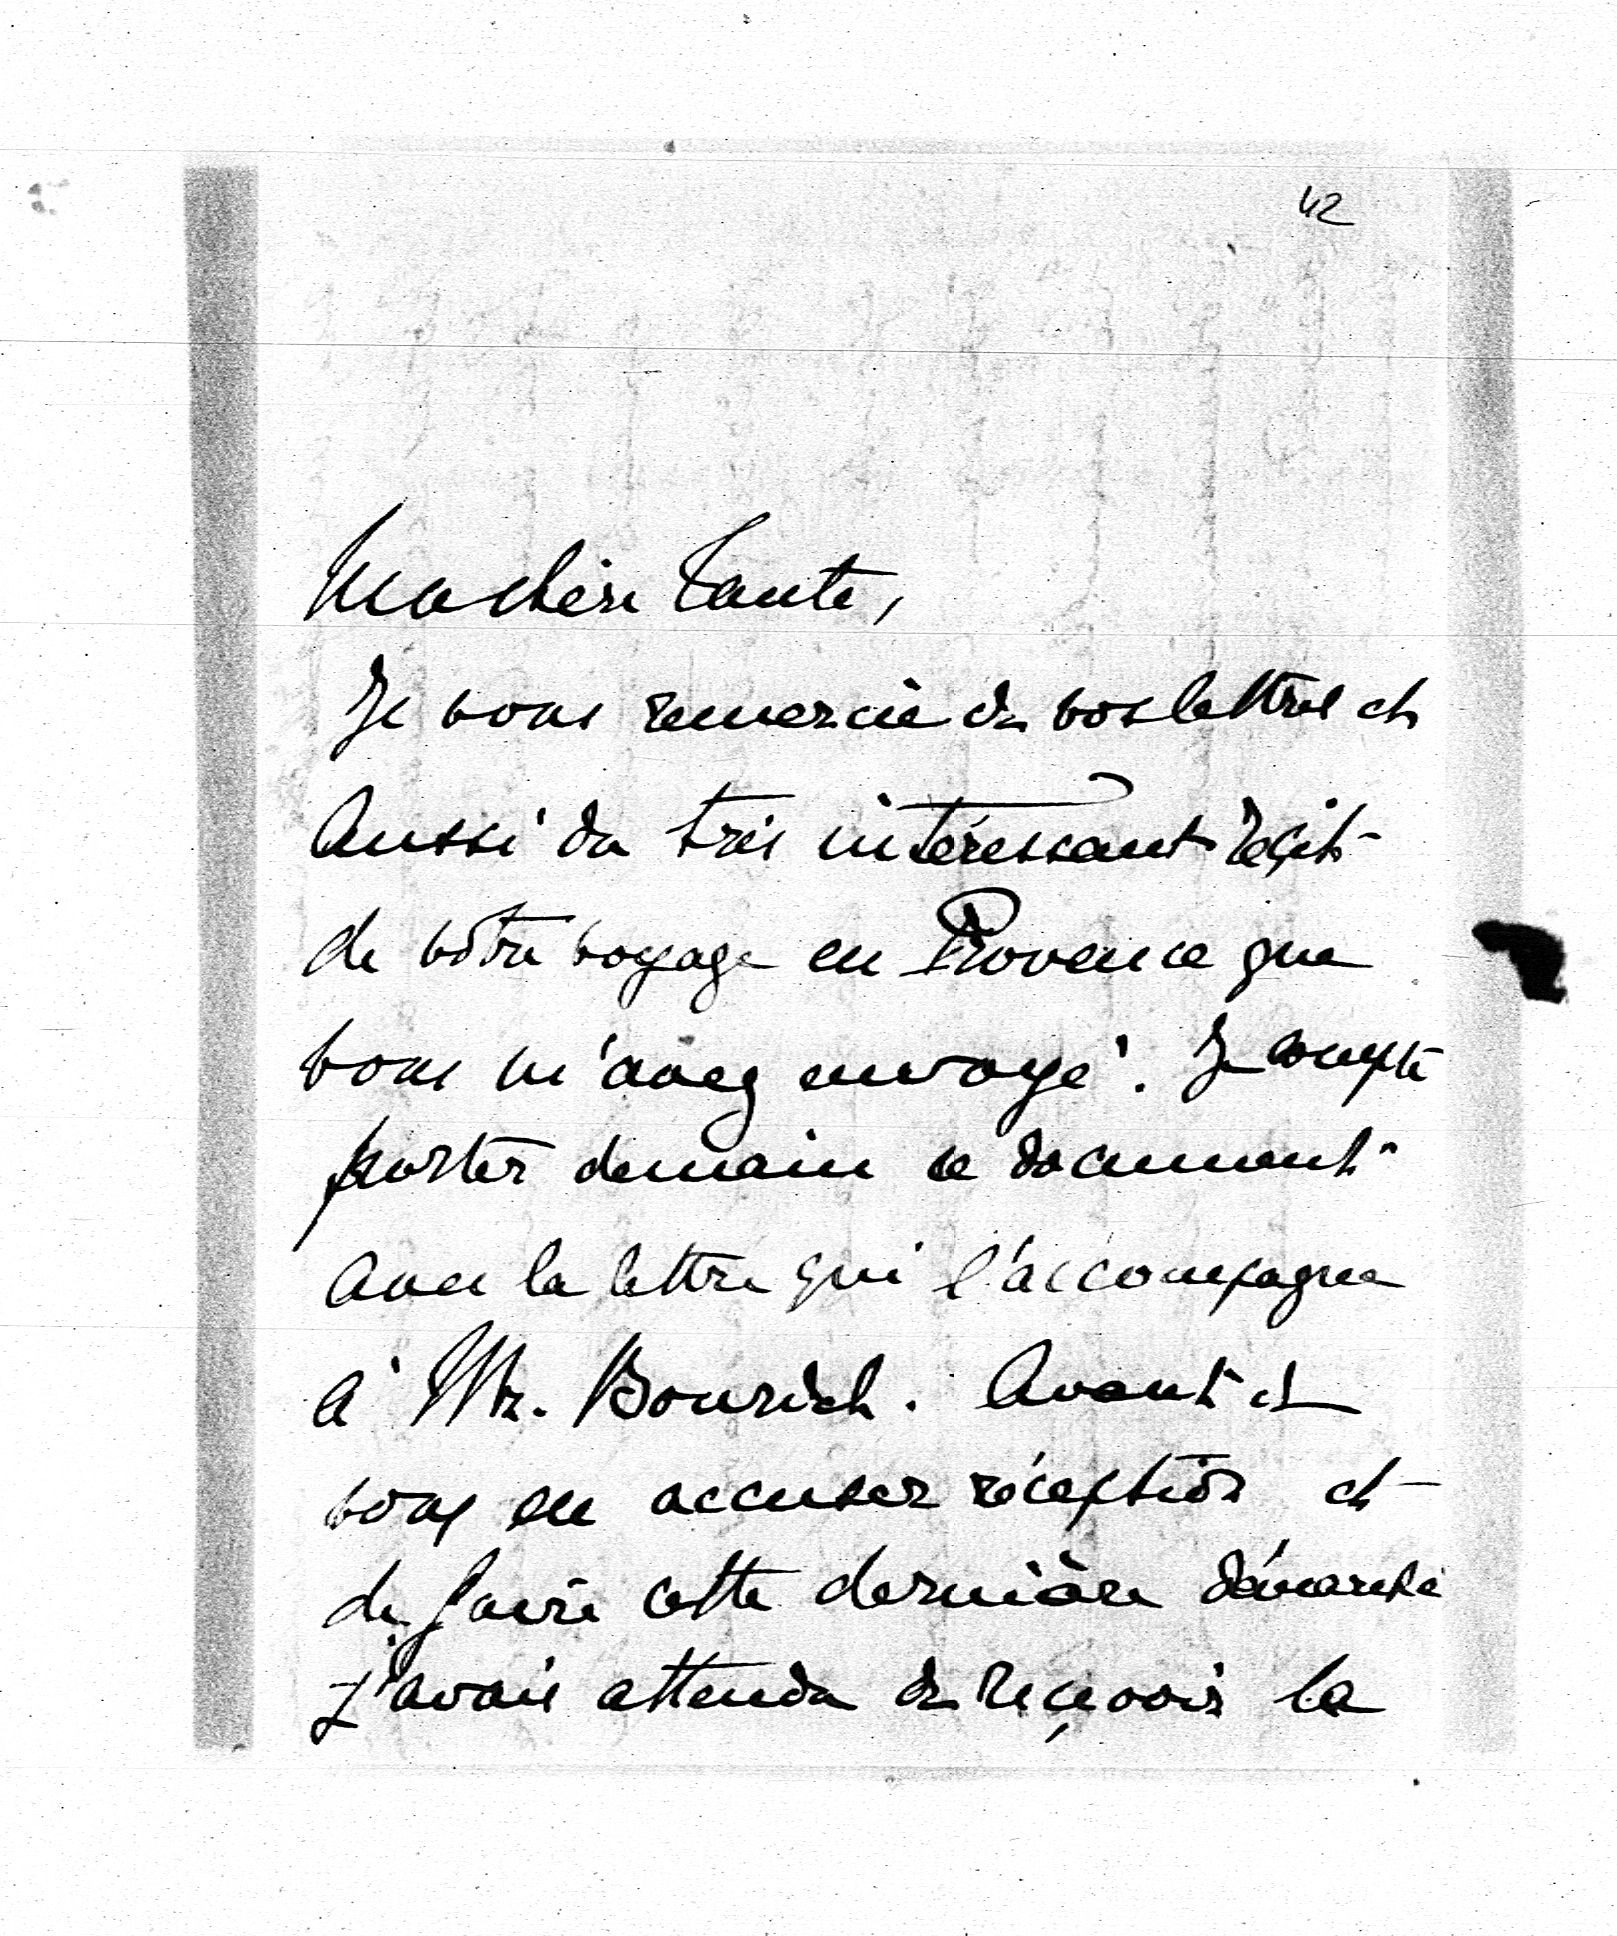 42
Ma chère Tante,
Je vous remercie de vos lettres et
aussi du très intéressant récit
de votre voyage en Provence que
vous m'avez envoyé. Je compte
porter demain ce document
avec la lettre qui l'accompagne
à Mr. . Avant de
vous en accuser réception et
de faire cette dernière démarche
j'avais attendu de reçevoir la